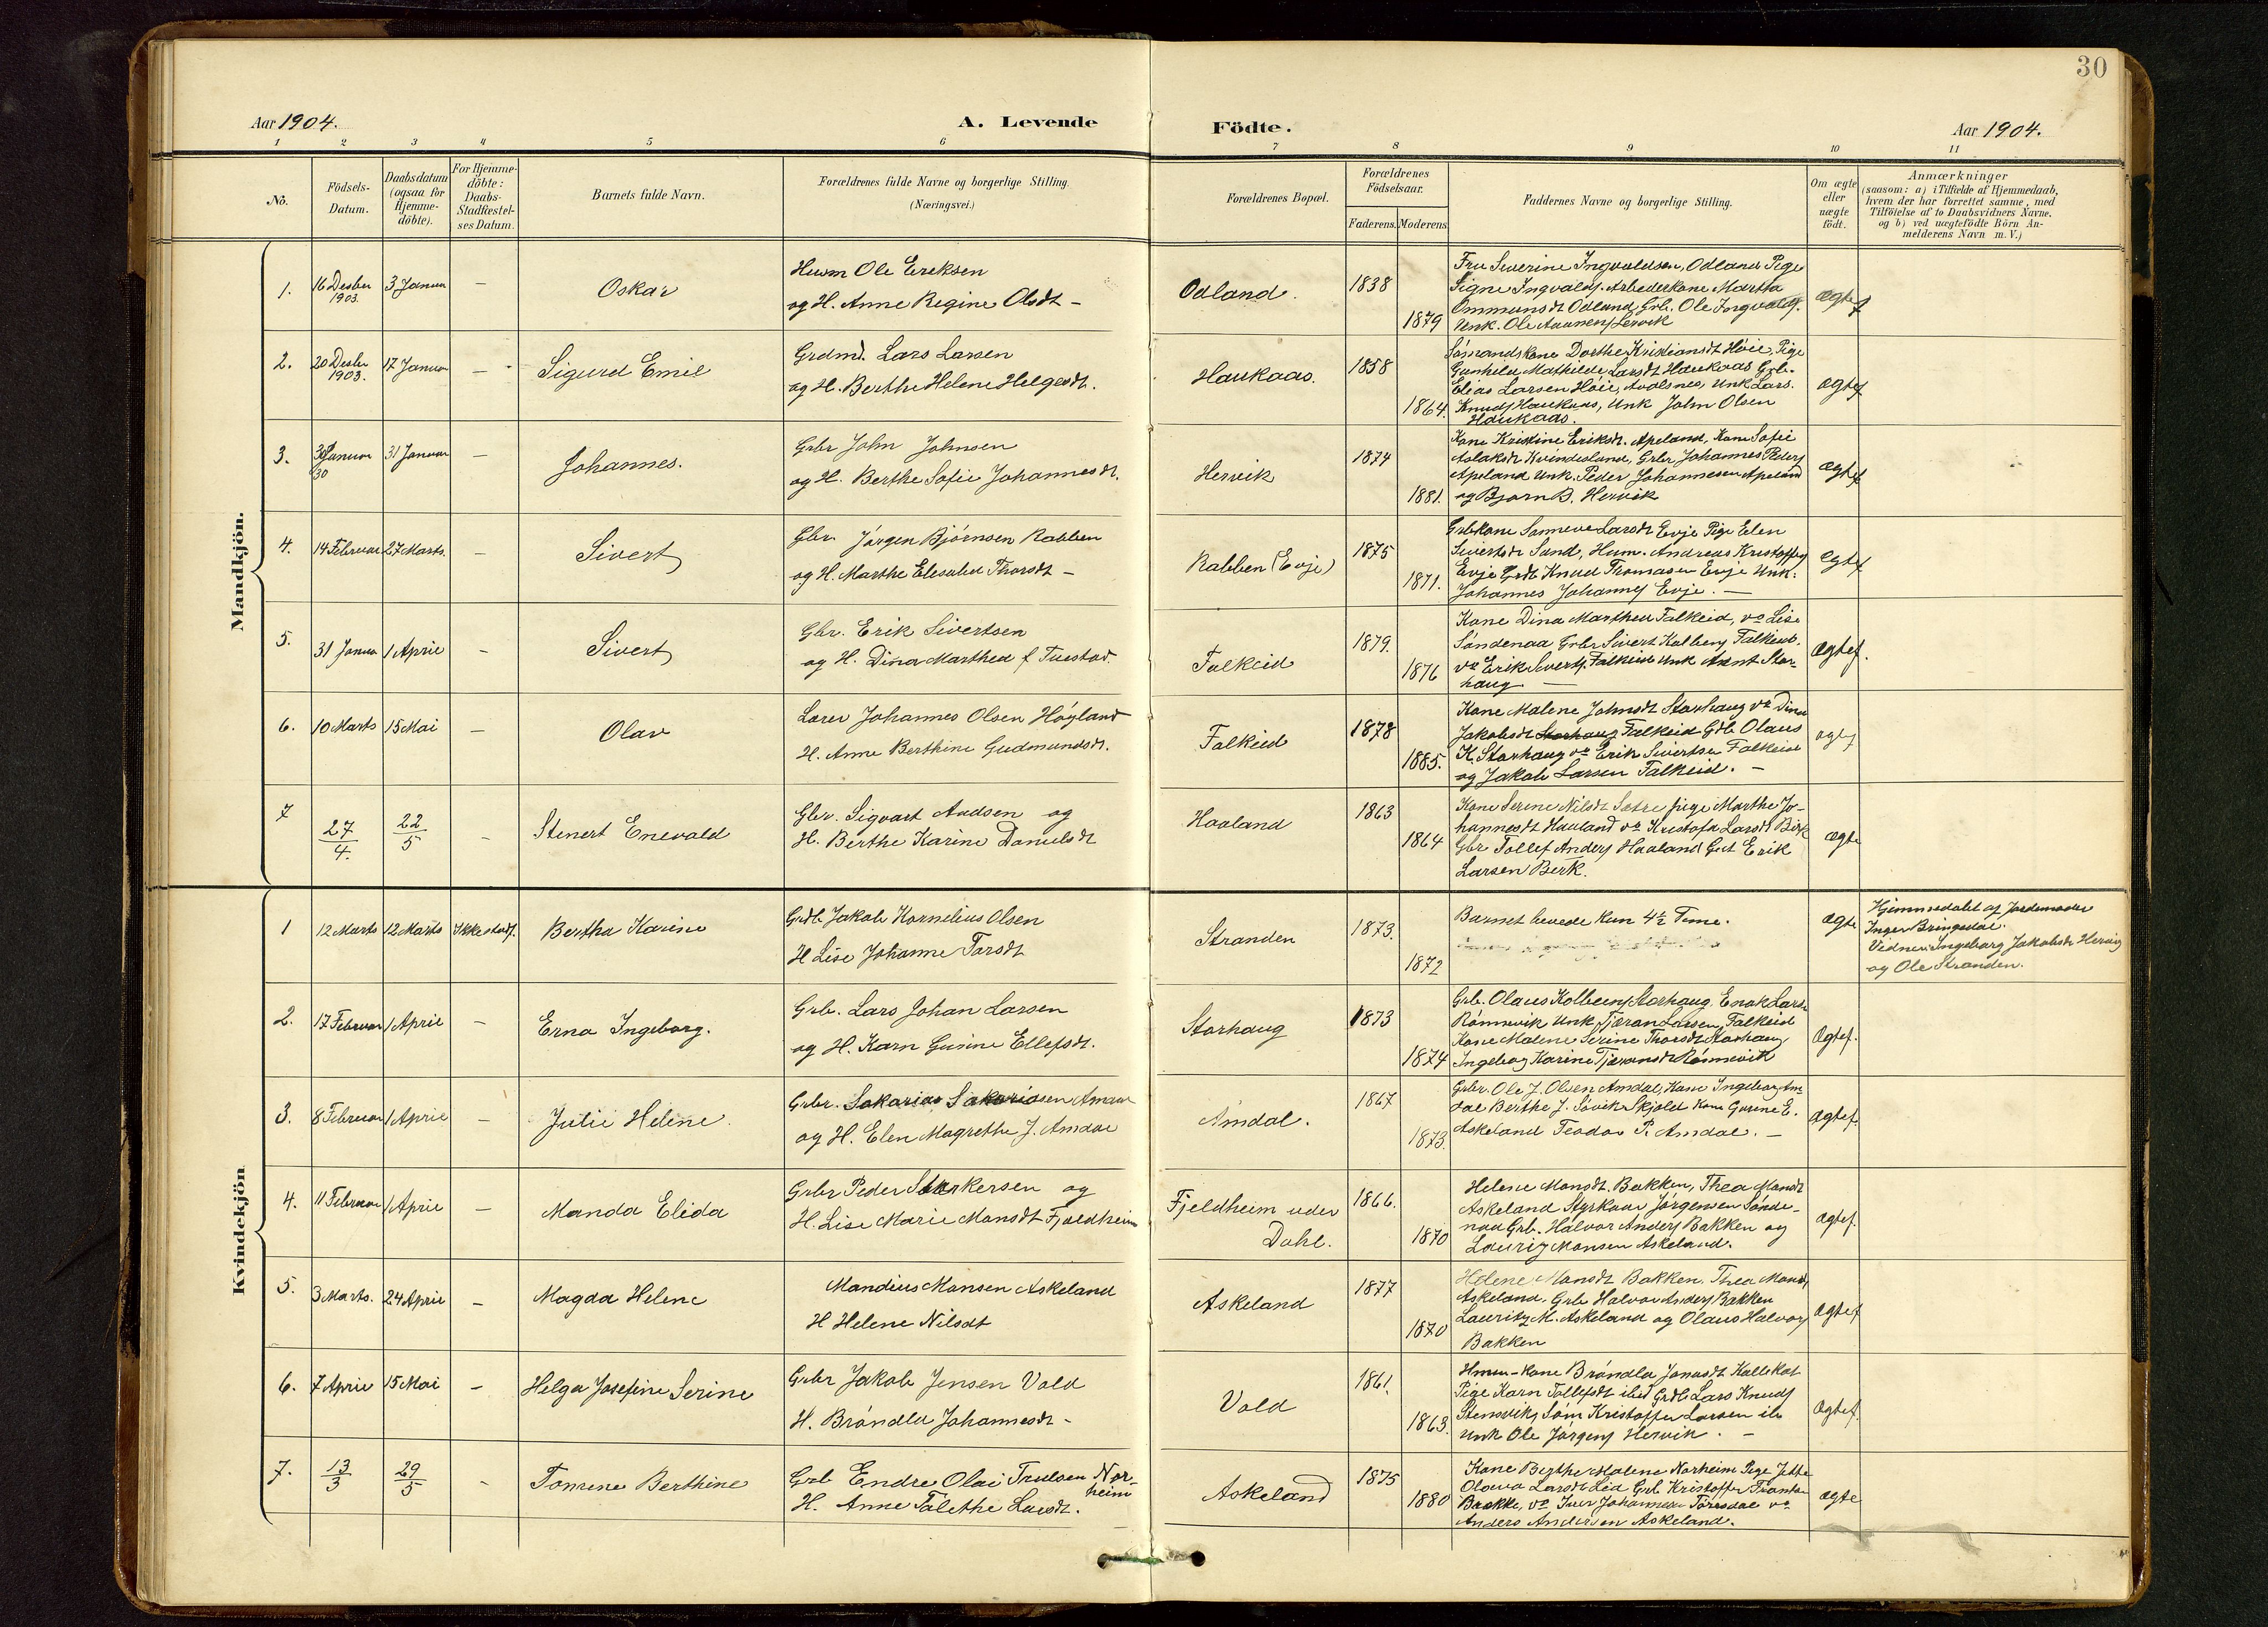 30
Aar 1904.
A. Levende Födte.
Aar 1904.
1 2 3 4 5 6 7 8 9 10 11
No.
Födsels-Datum.
Daabsdatum (ogsaa for Hjemme-döbte).
For Hjemme-döbte: Daabs-Stadfæstel-ses Datum.
Barnets fulde Navn.
Forældrenes fulde Navne og borgerlige Stilling.
(Næringsvei.)
Forældrenes Bopæl.
Forældrenes Födselsaar.
Faderens. Moderens
Faddernes Navne og borgerlige Stilling.
Om ægte eller uægte födt.
Anmærkninger
(saasom: a) i Tilfælde af Hjemmedaab,
hvem der har forrettet samme, med
Tilföielse af to Daabsvidners Navne.
og b) ved uægtefödte Börn An-
melderens Navn m. V.)
Mandkjön.
1. 16 Desbr 1903. 3 Januar - Oskar
Husm Ole Ereksen
og H. Anne Regine Olsdt -
Odland. 1838 1879
Fru Severine Ingvaldsen, Odland Pige
Signe Ingvalds. Arbederkone Martha
Ommundsdt Odland, Grb. Ole Ingvalds.
Unk. Ole Lervik
Ægtef
2. 20 Desbr 1903. 17 Januar - Sigurd Emil
Grdmd. Lars Larsen
og H. Berthe Helene Helgesdt.
Haukaas. 1858 1864.
Sömandskone Dorthe Kristiansdt Höie, Pige
Gunhild Mathilde Larsdt Haukaas Grb.
Elias Larsen Höie, Avalsnes, Unk Lars.
Knuds Haukaas, Unk John Olsen
Haukaas.
Ægtef
3. Januar 30 31 Januar - Johannes.
Grbr John Johnsen
og H. Berthe Sofie Johannesdt.
Hervik 1874 1881.
Kone Kristine Eriksdt. Apeland, Kone Sofie
Aslaksdt Kvindesland, Grbr Johannes Peders
Apeland Unk. Peder Johannesen Apeland
og Bjørn B. Hervik
Ægtef
4. 14 Februar 27 Marts. - Sivert
Gbr. Jörgen Bjørnsen Rabben
og H. Marthe Elesabed Thorsdt -
Rabben (Evje) 1875 1871.
Grbkone Sanneve Larsdt Evje Pige Elen
Sivertsdt Sund, Husm. Andreas Kristoffers
Evje Grdb Knud Thomasen Evje Unk:
Johannes Johannes Evje. -
Ægtef
5. 31 Januar 1 April - Sivert
Gbr. Erik Sivertsen
og H. Dina Marthea f. Tuestad.
Falkeid 1879. 1876
Kone Dina Marthea Falkeid, do Lise
Søndenaa Grbr Sivert Kolbens Falkeid.
do Erik Siverts. Falkeid Unk Arent Stor-
haug -
Ægtef.
6. 10 Marts 15 Mai - Olav
Lærer Johannes Olsen Høyland
H. Anne Berthine Gudmundsdt.
Falkeid 1878 1885.
Kone Malene Johnsdt Storhaug do Dina
Jakobsdt Storhaug Falkeid Gdb Olaus
K. Storhaug do Erik Sivertsen Falkeid
og Jakob Larsen Falkeid. -
7 27/4. 22/5 - Stenert Enevald
Gbr. Sigvart Audsen og
H. Berthe Karine Danielsdt
Haaland 1863 1864
Kone Serine Nilsdt Sætre pige Marthe Jo-
hannesdt Haaland do Kristofa Larsdt Birk
Gbr Tollef Anders Haaland Erik
Larsen Berk.
Ægte
Kvindekjön
1 12 Marts 12 Marts Ikke stadf. Bertha Karine
Grdb Jakob Kornelius Olsen
H Lise Johanne Tarsdt
Stranden 1873. 1872
Barnet levede kun 4½ Time.
Ægte
Hjemmedøbt af Jordemoder
Inger Bringedal.
Vidner: Ingeborg Jakobsdt Hervig
og Ole Stranden.
2. 17 Februar 1 April - Erna Ingeborg.
Grb. Lars Johan Larsen
og H. Karn Gurine Ellefsdt.
Storhaug 1873 1874
Grb. Olaus Kolbens Storhaug. Enok Lars.
Rønnevik Unk Tjøran Larsen, Falkeid
Kone Malene Serine Thorsdt Storhaug,
Ingeborg Karine Tjøransdt Rønnevik
Ægtef.
3. 8 Februar 1 April - Julie Helene.
Grbr. Sakarias Sakariasen Amdal
og H. Elen Magrethe J. Amdal
Amdal. 1867 1873.
Grbr. Ole J. Olsen Amdal, Kone Ingeborg Am
dal Berthe J. Søvik Skjold Kone Gurine E.
Askeland Teodor P. Amdal. -
Ægtef.
4. 11 Februar 1 April - Manda Elida
Grbr Peder Størkersen og
H. Lise Marie Monsdt Fjeldheim
Fjeldheim under
Dahl. 1866. 1870
Helene Monsdt. Bakken, Thea Monsdt
Askeland Styrkaar Jørgensen Sønde-
naa Grb. Halvor Anders Bakken og
Laurits Monsen Askeland.
Ægtef.
5. 3 Marts. 24 April - Magda Helene
Mandius Monsen Askeland
H Helene Nilsdt
Askeland 1877 1870
Helene Monsdt Bakken. Thea Monsdt
Askeland, Grb Halvor Anders Bakken
Lauritz M. Askeland og Olaus Halvors
Bakken
Ægtef
6. 7 April 15 Mai - Helga Josefine Serine
Grbr Jakob Jensen Vold
H. Brøndla Johannesdt -
Vold 1861. 1863.
Hmm-kone Brøndla Jonasdt Kallekot
Pige Karn Tollefsdt ibid Grdb Lars Knuds
Stensvik, Søm Kristoffer Larsen ib
Unk Ole Jørgens Hervik. -
Ægtef.
7. 13/3 29/5 - Tomine Berthine
Grb Endre Olai Trulsen Nor-
heim
H. Anne Talethe Larsdt.
Askeland 1875 1880
Kone Berthe Malene Norheim Pige Jette
Olava Larsdt Lid Grb Kristoffer
Brække, do Iver Johannesen Tørresdal do
Anders Andersen Askeland.
Ægte